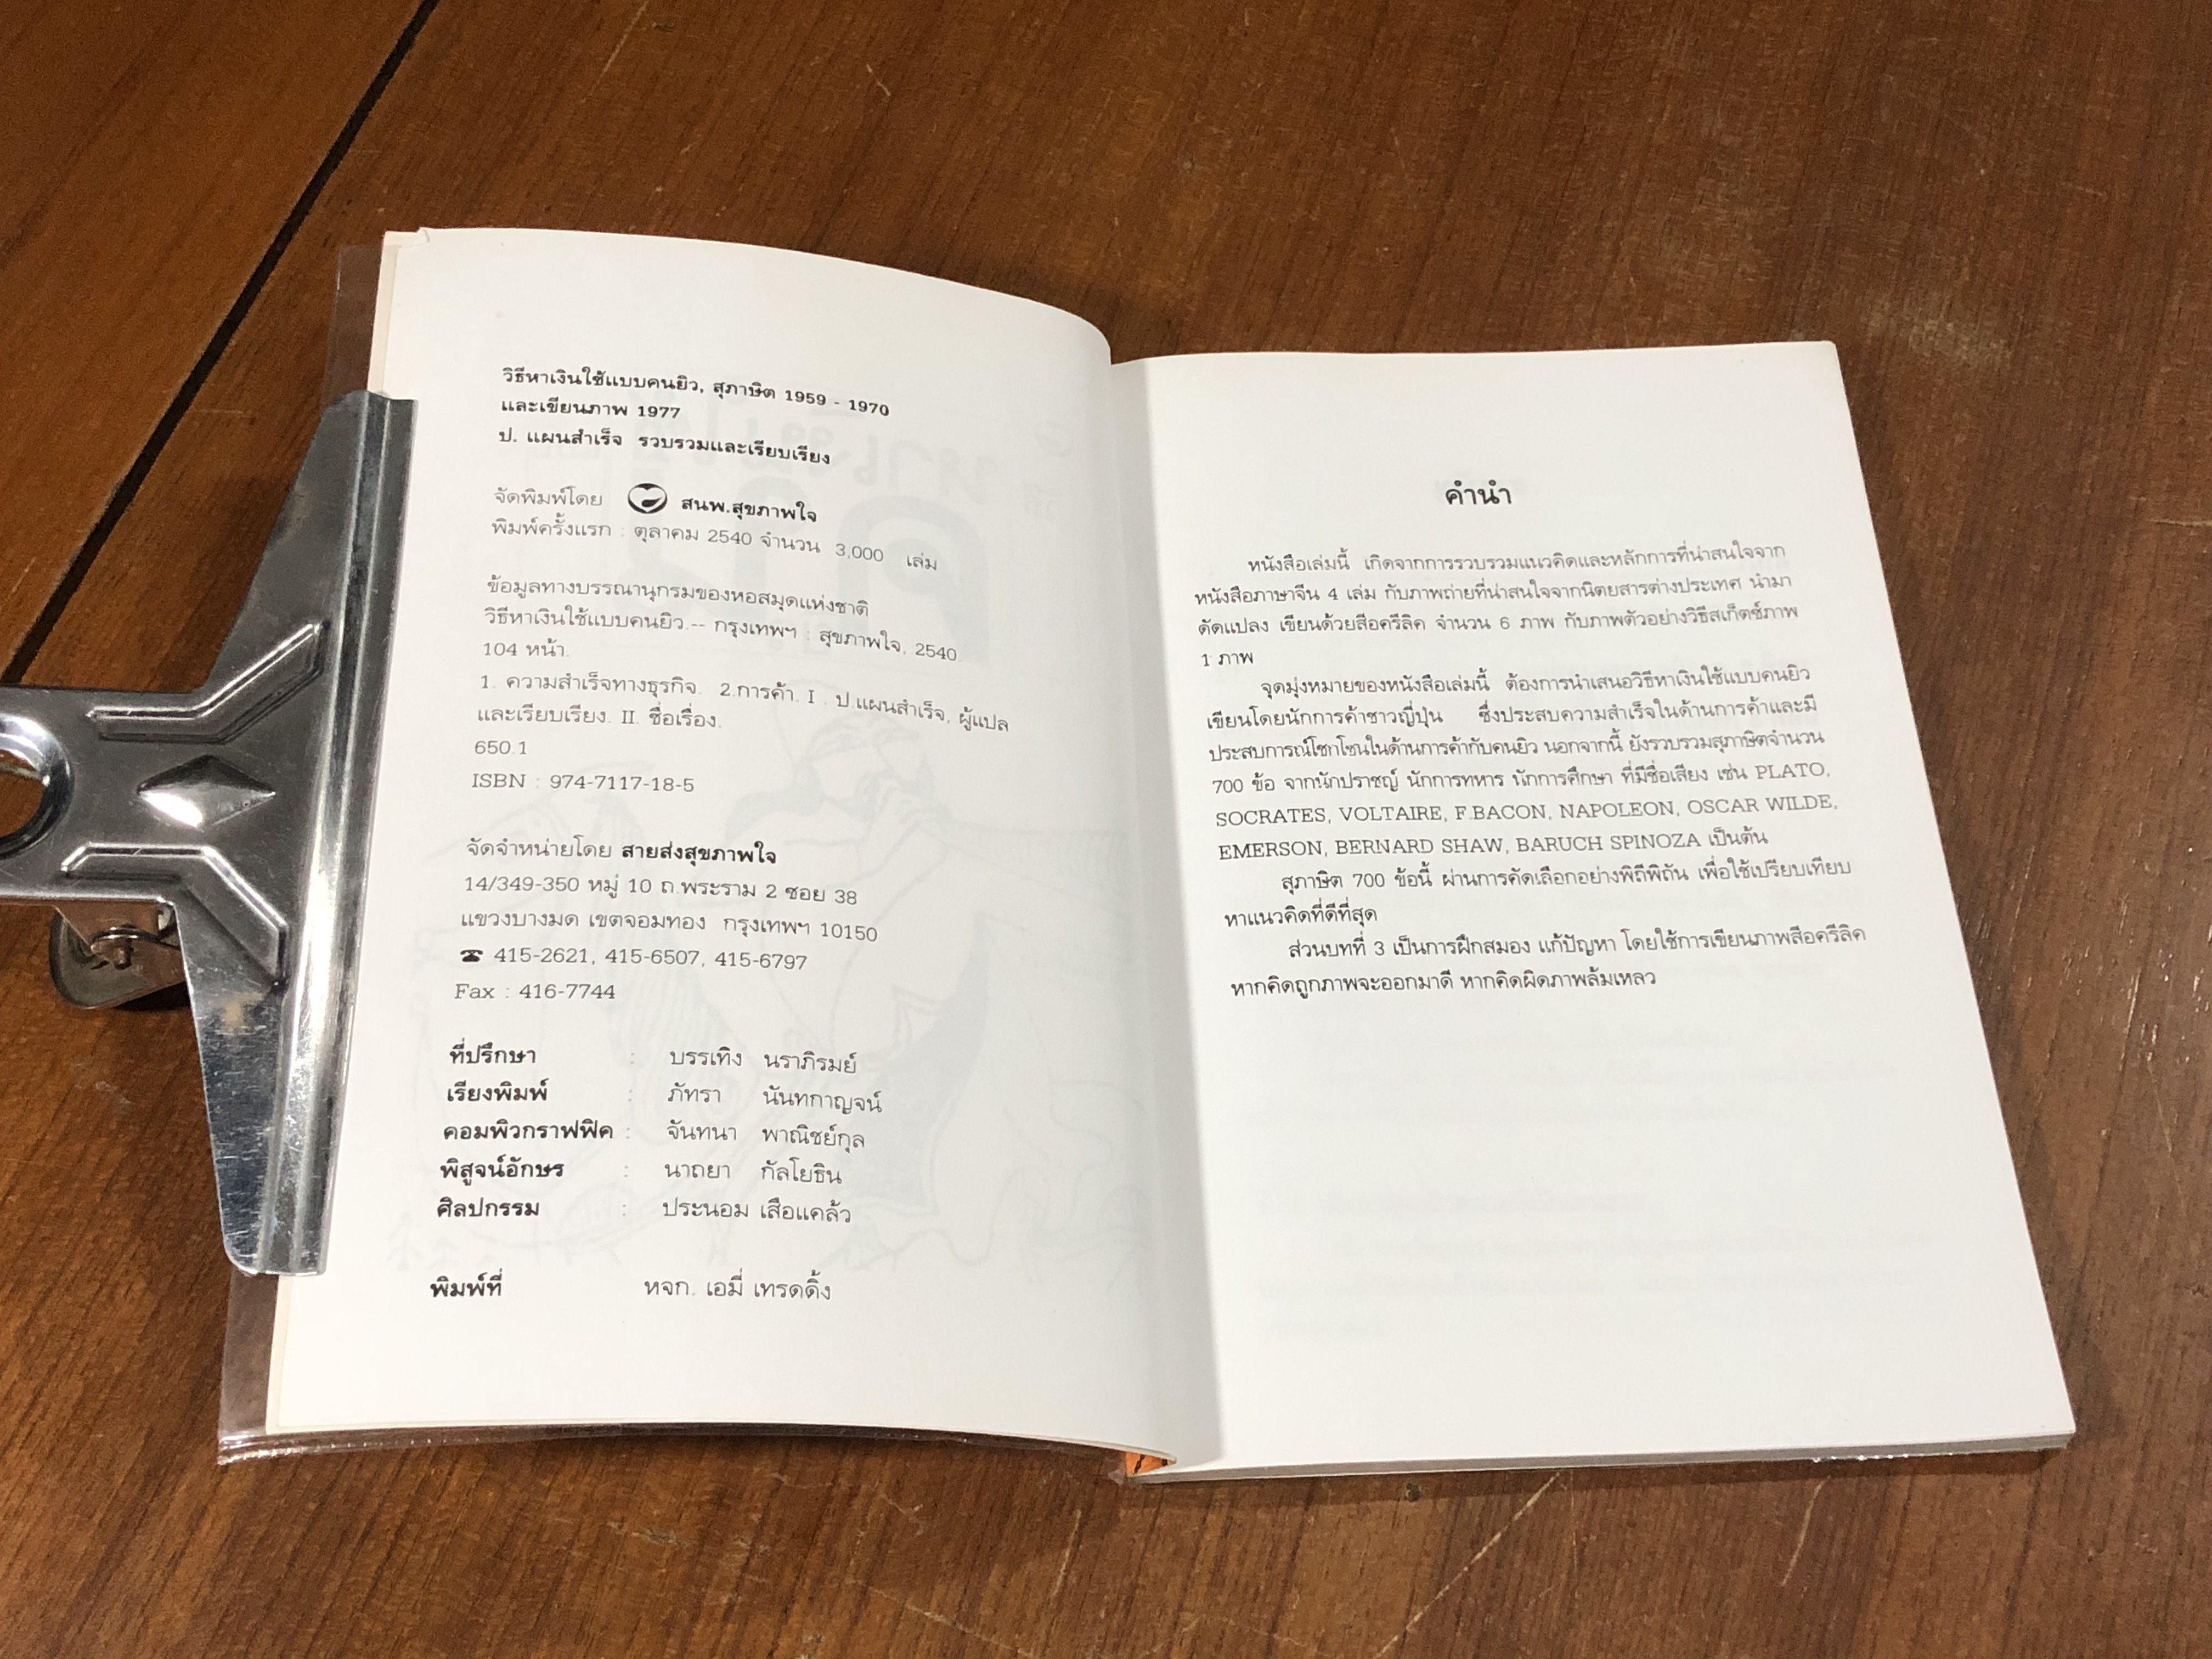 วิธีหาเงินใช้แบบคนยิว, สุภาษิต 1959 - 1970
และเขียนภาพ 1977
ป. แผนสำเร็จ รวบรวมและเรียบเรียง
จัดพิมพ์โดย สนพ.สุขภาพใจ
พิมพ์ครั้งแรก : ตุลาคม 2540 จำนวน 3,000 เล่ม
ข้อมูลทางบรรณานุกรมของหอสมุดแห่งชาติ
วิธีหาเงินใช้แบบคนยิว.-- กรุงเทพฯ : สุขภาพใจ, 2540.
104 หน้า.
1. ความสำเร็จทางธุรกิจ. 2.การค้า. I . ป.แผนสำเร็จ, ผู้แปล
และเรียบเรียง. II. ชื่อเรื่อง.
650.1
ISBN : 974-7117-18-5
จัดจำหน่ายโดย สายส่งสุขภาพใจ
14/349-350 หมู่ 10 ถ.พระราม 2 ซอย 38
แขวงบางมด เขตจอมทอง กรุงเทพฯ 10150
☎ 415-2621, 415-6507, 415-6797
Fax : 416-7744
ที่ปรึกษา : บรรเทิง นราภิรมย์
เรียงพิมพ์ : ภัทรา นันทกาญจน์
คอมพิวกราฟฟิค : จันทนา พาณิชย์กุล
พิสูจน์อักษร : นาถยา กัลโยธิน
ศิลปกรรม : ประนอม เสือแคล้ว
พิมพ์ที่ หจก. เอมี่ เทรดดิ้ง
คำนำ
หนังสือเล่มนี้ เกิดจากการรวบรวมแนวคิดและหลักการที่น่าสนใจจาก
หนังสือภาษาจีน 4 เล่ม กับภาพถ่ายที่น่าสนใจจากนิตยสารต่างประเทศ นำมา
ดัดแปลง เขียนด้วยสีอครีลิค จำนวน 6 ภาพ กับภาพตัวอย่างวิธีสเก็ตซ์ภาพ
1 ภาพ
จุดมุ่งหมายของหนังสือเล่มนี้ ต้องการนำเสนอวิธีหาเงินใช้แบบคนยิว
เขียนโดยนักการค้าชาวญี่ปุ่น ซึ่งประสบความสำเร็จในด้านการค้าและมี
ประสบการณ์โชกโชนในด้านการค้ากับคนยิว นอกจากนี้ ยังรวบรวมสุภาษิตจำนวน
700 ข้อ จากนักปราชญ์ นักการทหาร นักการศึกษา ที่มีชื่อเสียง เช่น PLATO,
SOCRATES, VOLTAIRE, F.BACON, NAPOLEON, OSCAR WILDE,
EMERSON, BERNARD SHAW, BARUCH SPINOZA เป็นต้น
สุภาษิต 700 ข้อนี้ ผ่านการคัดเลือกอย่างพิถีพิถัน เพื่อใช้เปรียบเทียบ
หาแนวคิดที่ดีที่สุด
ส่วนบทที่ 3 เป็นการฝึกสมอง แก้ปัญหา โดยใช้การเขียนภาพสีอครีลิค
หากคิดถูกภาพจะออกมาดี หากคิดผิดภาพล้มเหลว